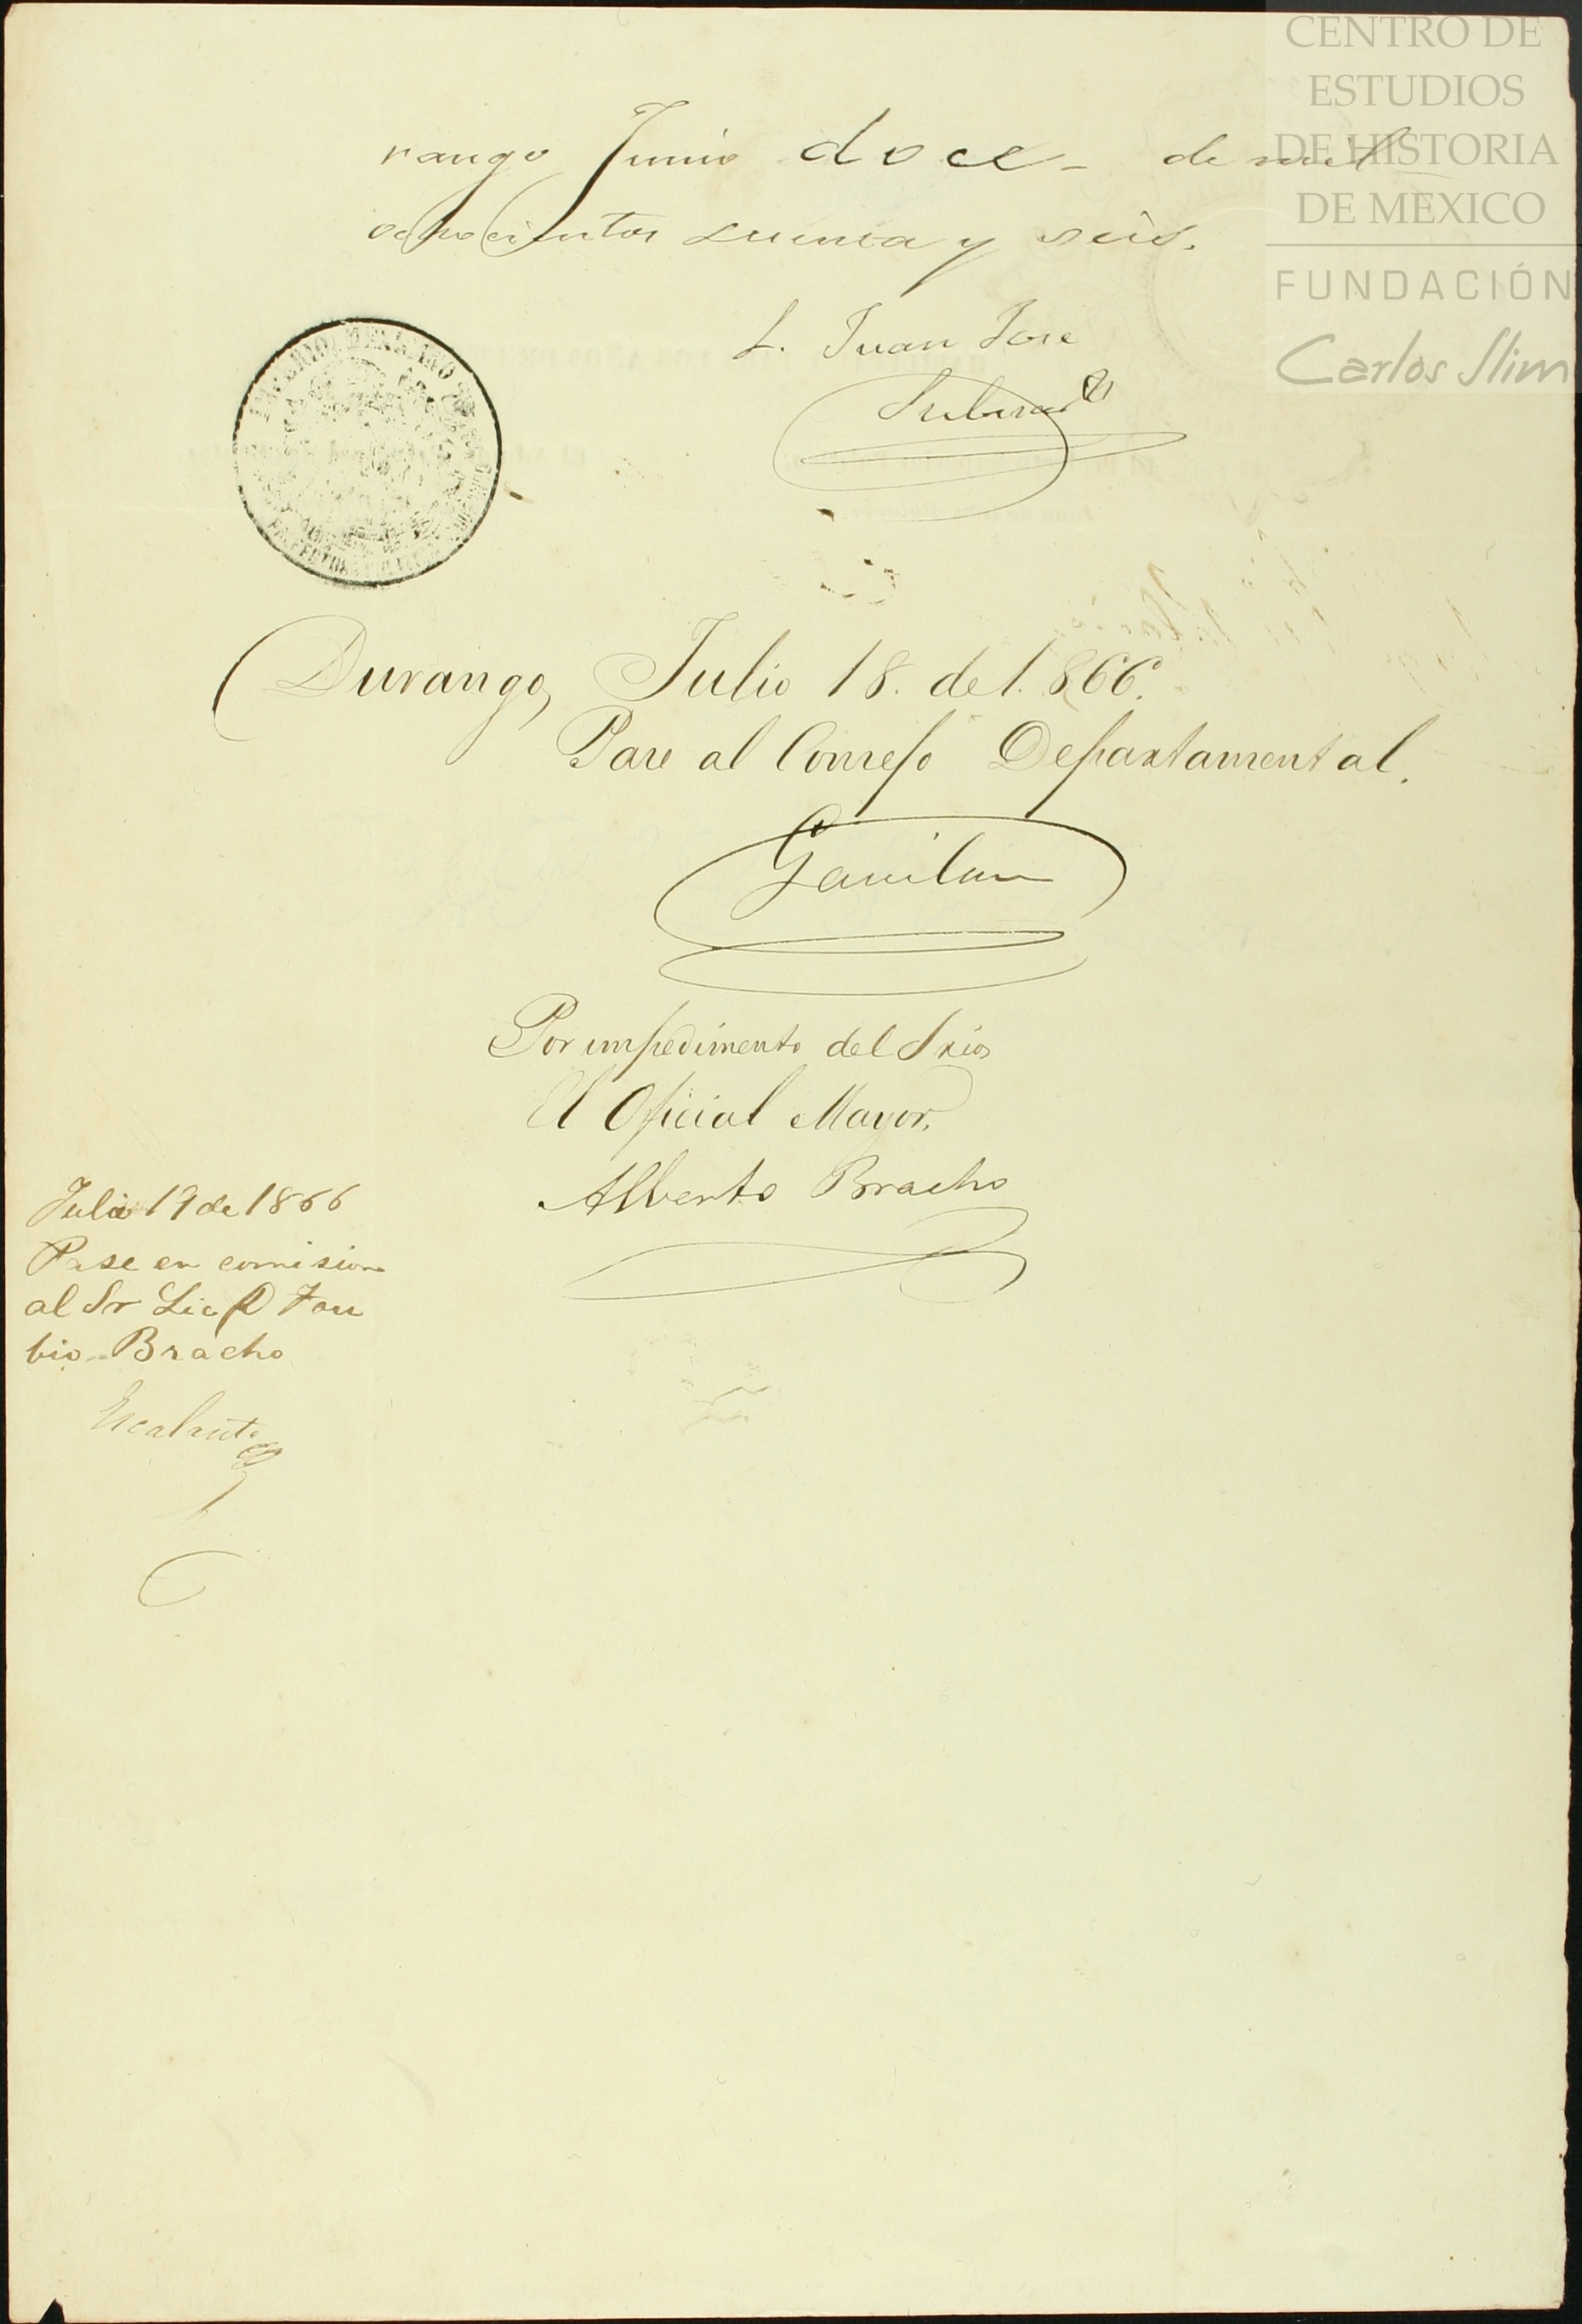 CENTRO DE
ESTUDIOS
DE HISTORIA
DE MEXICO
FUNDACIÓN
Carlos Slim
rango Junio doce - de mil
ochocientos secenta y seis.
L. Juan José
IMPERIO MEXICANO
PREFECTURA
Durango, Julio 18. de 1.866.
Pase al Consejo Departamental.
Gavilan
Por impedimento del Srio
El Oficial Mayor.
Alberto Bracho
Julio 19 de 1866
Pase en comision
al Sr Lic D Tori
bio Bracho
Escalante